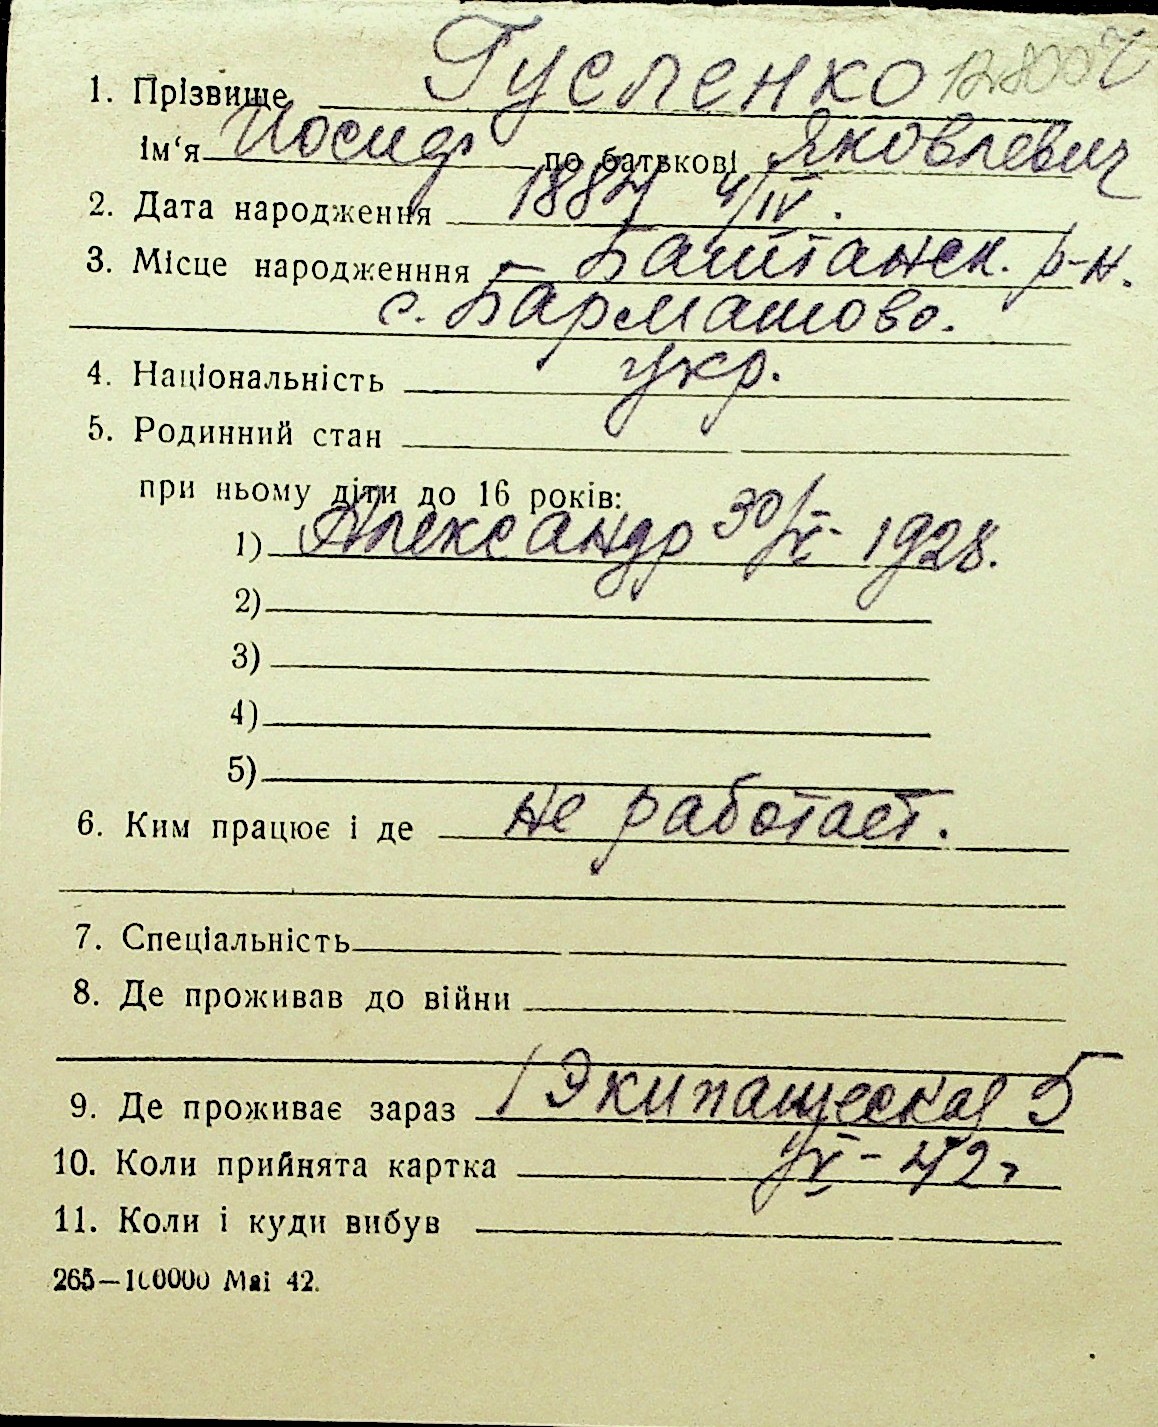 1. Прізвище Гусленко
ім‘я Иосиф по батькові Яковлевич
2. Дата народження 1884 4/IV.
3. Місце народженння Баштанск. р-н.
с. Бармашово.
4. Національність укр.
5. Родинний стан
при ньому діти до 16 років:
1) Александр 30/IX- 1928.
2)
3)
4)
5)
6. Ким працює і де не работает.
7. Спеціальність
8. Де проживав до війни
9. Де проживає зараз 1 Экипащеская 5
10. Коли прийнята картка - 42г
11. Коли і куди вибув
265—100000 Mai 42.